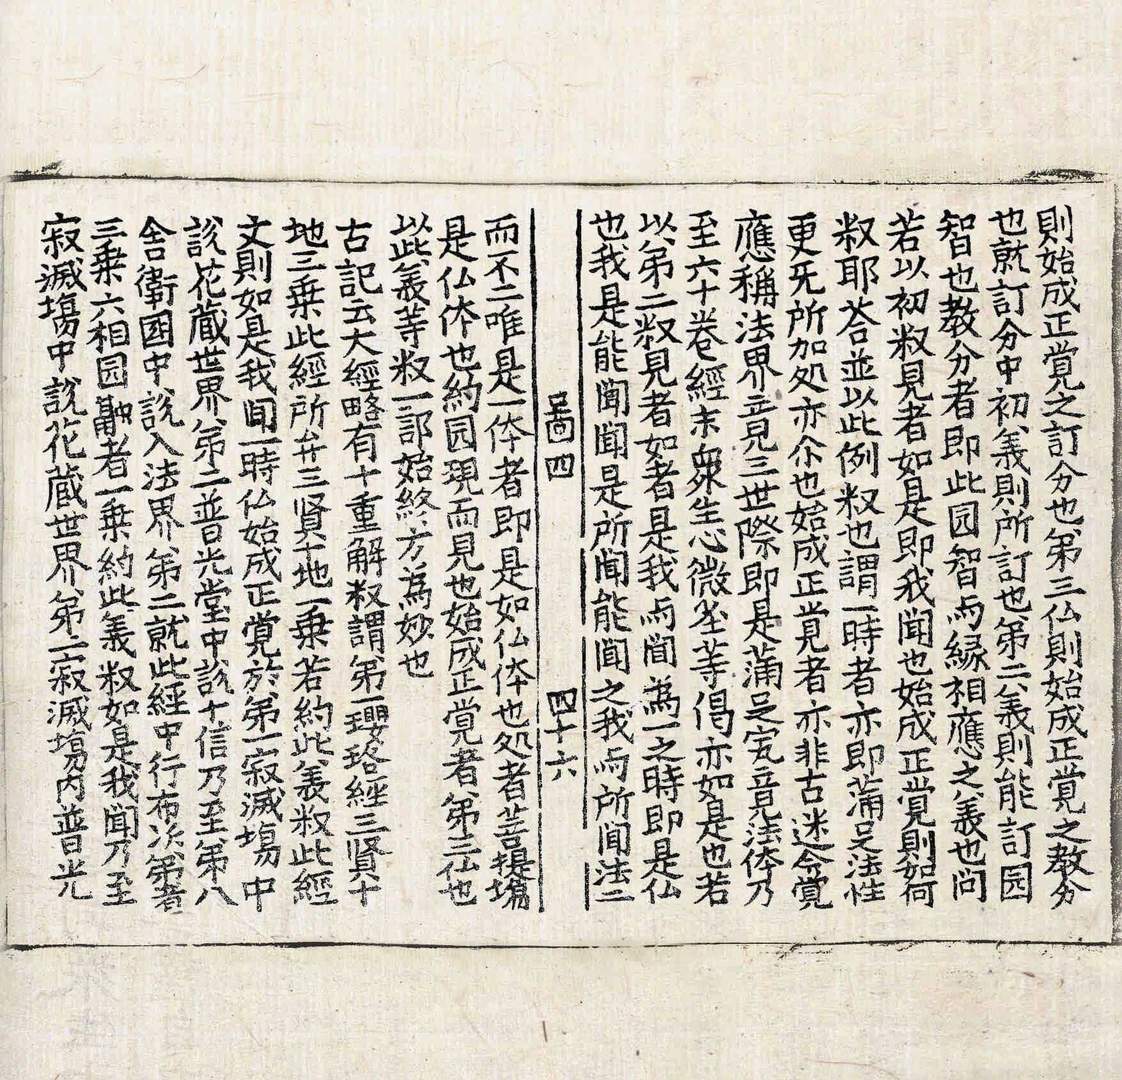 則始成正覚之訂分也第三仏則始成正覚之教分
也就訂分中初義則所訂也第二義則能訂园
智也教分者即此园智与縁相應之義也问
若以初㪽見者如是即我聞也始成正覚則如何
㪽耶荅並以此例㪽也謂一時者亦即蒲足法性
更旡所加処亦尒也始成正覚者亦非古迷今覚
應稱法界立見三世際即是蒲足実音見法体乃
至六十卷經末衆生心微塵等偈亦如是也若
以第二㪽見者如者是我与聞為一之時即是仏
也我是能聞聞是所聞能聞之我与所聞法二
啚四 四十六
而不二唯是一体者即是如仏体也処者菩提塲
是仏体也約园現而見也始成正覚者第三仏也
以此義等㪽一部始終方為妙也
古記云大經略有十重解㪽謂第一瓔珞經三賢十
地三乗此經所弁三賢十地一乗若約此義㪽此經
文則如是我聞一時仏始成正覚於第一寂滅塲中
說花蔵世界第二普光堂中說十信乃至第八
舍衛國中說入法界第二就此經中行布次第者
三乗六相园融者一乗約此義㪽如是我聞乃至
寂滅塲中說花蔵世界第二寂滅塲内普光